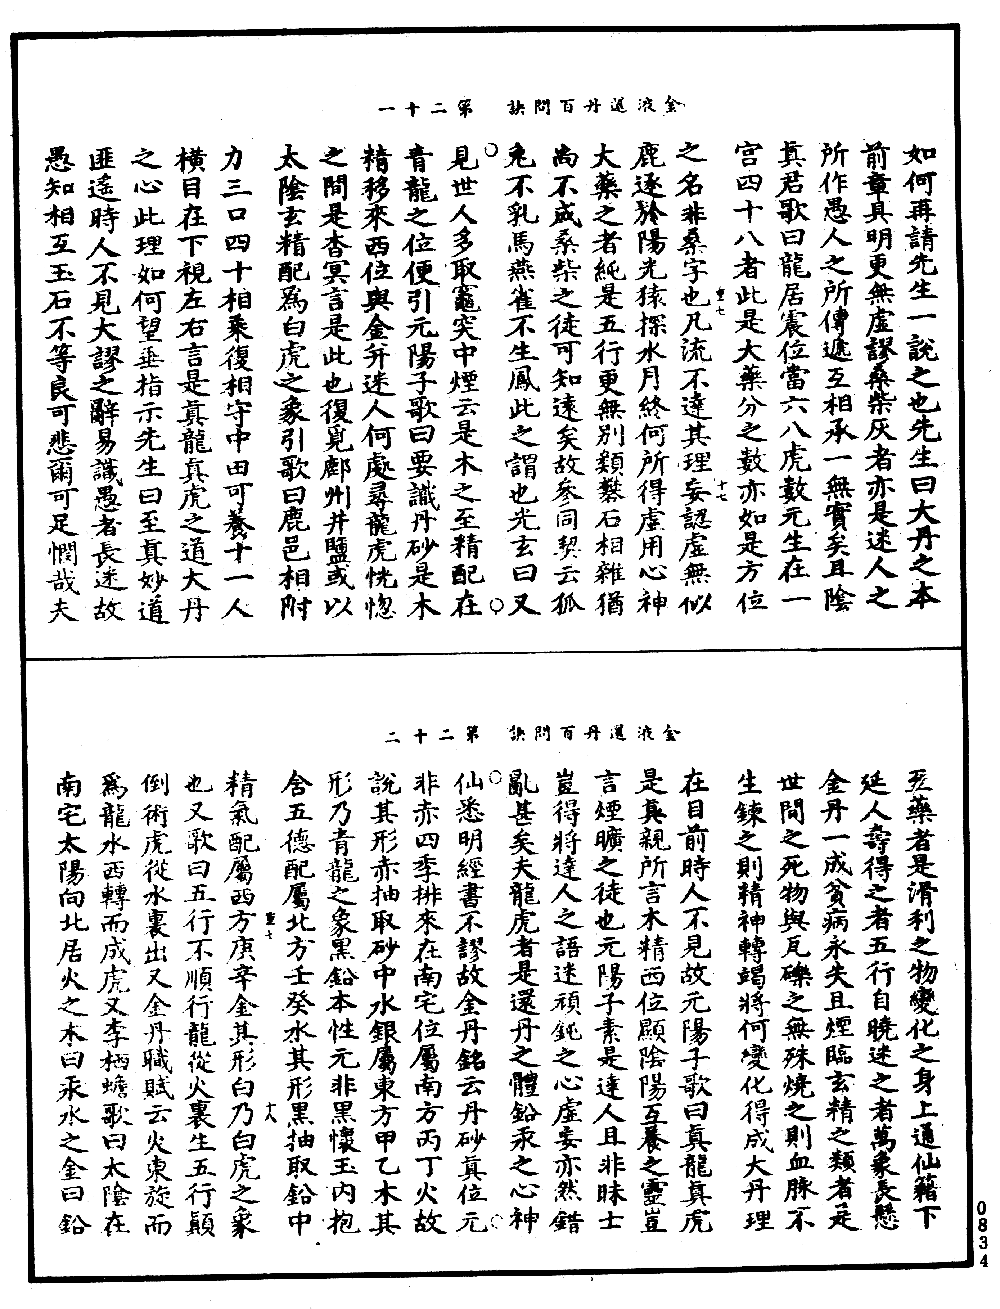 金液還丹百問訣　第二十一
如何再請先生一說之也先生曰大丹之本
前章具明更無虛謬桑柴灰者亦是迷人之
所作愚人之所傳遞互相承一無實矣且陰
真君歌曰龍居震位當六八虎數元生在一
宮四十八者此是大藥分之數亦如是方位
之名非桑字也凡流不達其理妄認虛無似
鹿逐於陽光猿探水月終何所得虛用心神
大藥之者純是五行更無別類礬石相雜猶
尚不成桑柴之徒可知遠矣故參同契云狐
兔不乳馬燕雀不生鳳此之謂也光玄曰又
見世人多取竈突中煙云是木之至精配在
青龍之位便引元陽子歌曰要識丹砂是木
精移來西位與金并迷人何處尋龍虎恍惚
之間是杳冥言是此也復覓鄜州井鹽或以
太陰玄精配為白虎之象引歌曰鹿邑相附
力三口四十相乘復相守中田可養十一人
橫目在下視左右言是真龍真虎之道大丹
之心此理如何望垂指示先生曰至真妙道
匪遙時人不見大謬之辭易識愚者長迷故
愚知相互玉石不等良可悲爾可足憫哉夫
金液還丹百問訣　第二十二
至藥者是滑利之物變化之身上通仙籍下
延人壽得之者五行自曉迷之者萬象長懸
金丹一成貧病永失且煙臨玄精之類者是
世間之死物與瓦礫之無殊燒之則血脉不
生鍊之則精神轉竭將何變化得成大丹理
在目前時人不見故元陽子歌曰真龍真虎
是真親所言木精西位顯陰陽互養之靈豈
言煙曠之徒也元陽子素是達人且非昧士
豈得將達人之語迷頑鈍之心虛妄亦然錯
亂甚矣夫龍虎者是還丹之體鉛汞之心神
仙悉明經書不謬故金丹銘云丹砂真位元
非赤四季排來在南宅位屬南方丙丁火故
說其形赤抽取砂中水銀屬東方甲乙木其
形乃青龍之象黑鉛本性元非黑懷玉內抱
含五德配屬北方壬癸水其形黑抽取鉛中
精氣配屬西方庚辛金其形白乃白虎之象
也又歌曰五行不順行龍從火裏生五行顛
倒術虎從水裏出又金丹職賦云火東旋而
為龍水西轉而成虎又李栖蟾歌曰太陰在
南宅太陽向北居火之木曰汞水之金曰鉛
重七
十七
重七
十八
0834